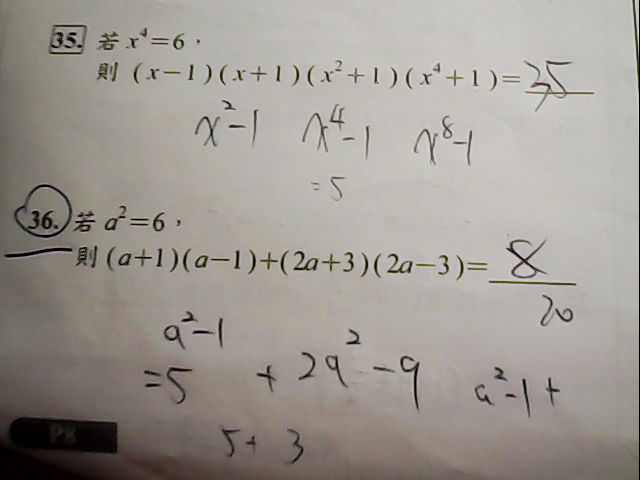 35. 若 x⁴=6，
則 (x−1)(x+1)(x²+1)(x⁴+1)=35
x²−1 x⁴−1 x⁸−1
=5
36. 若 a²=6，
則 (a+1)(a−1)+(2a+3)(2a−3)=8
20
a²−1
=5 + 2a²−9 a²−1+
5+ 3
P8